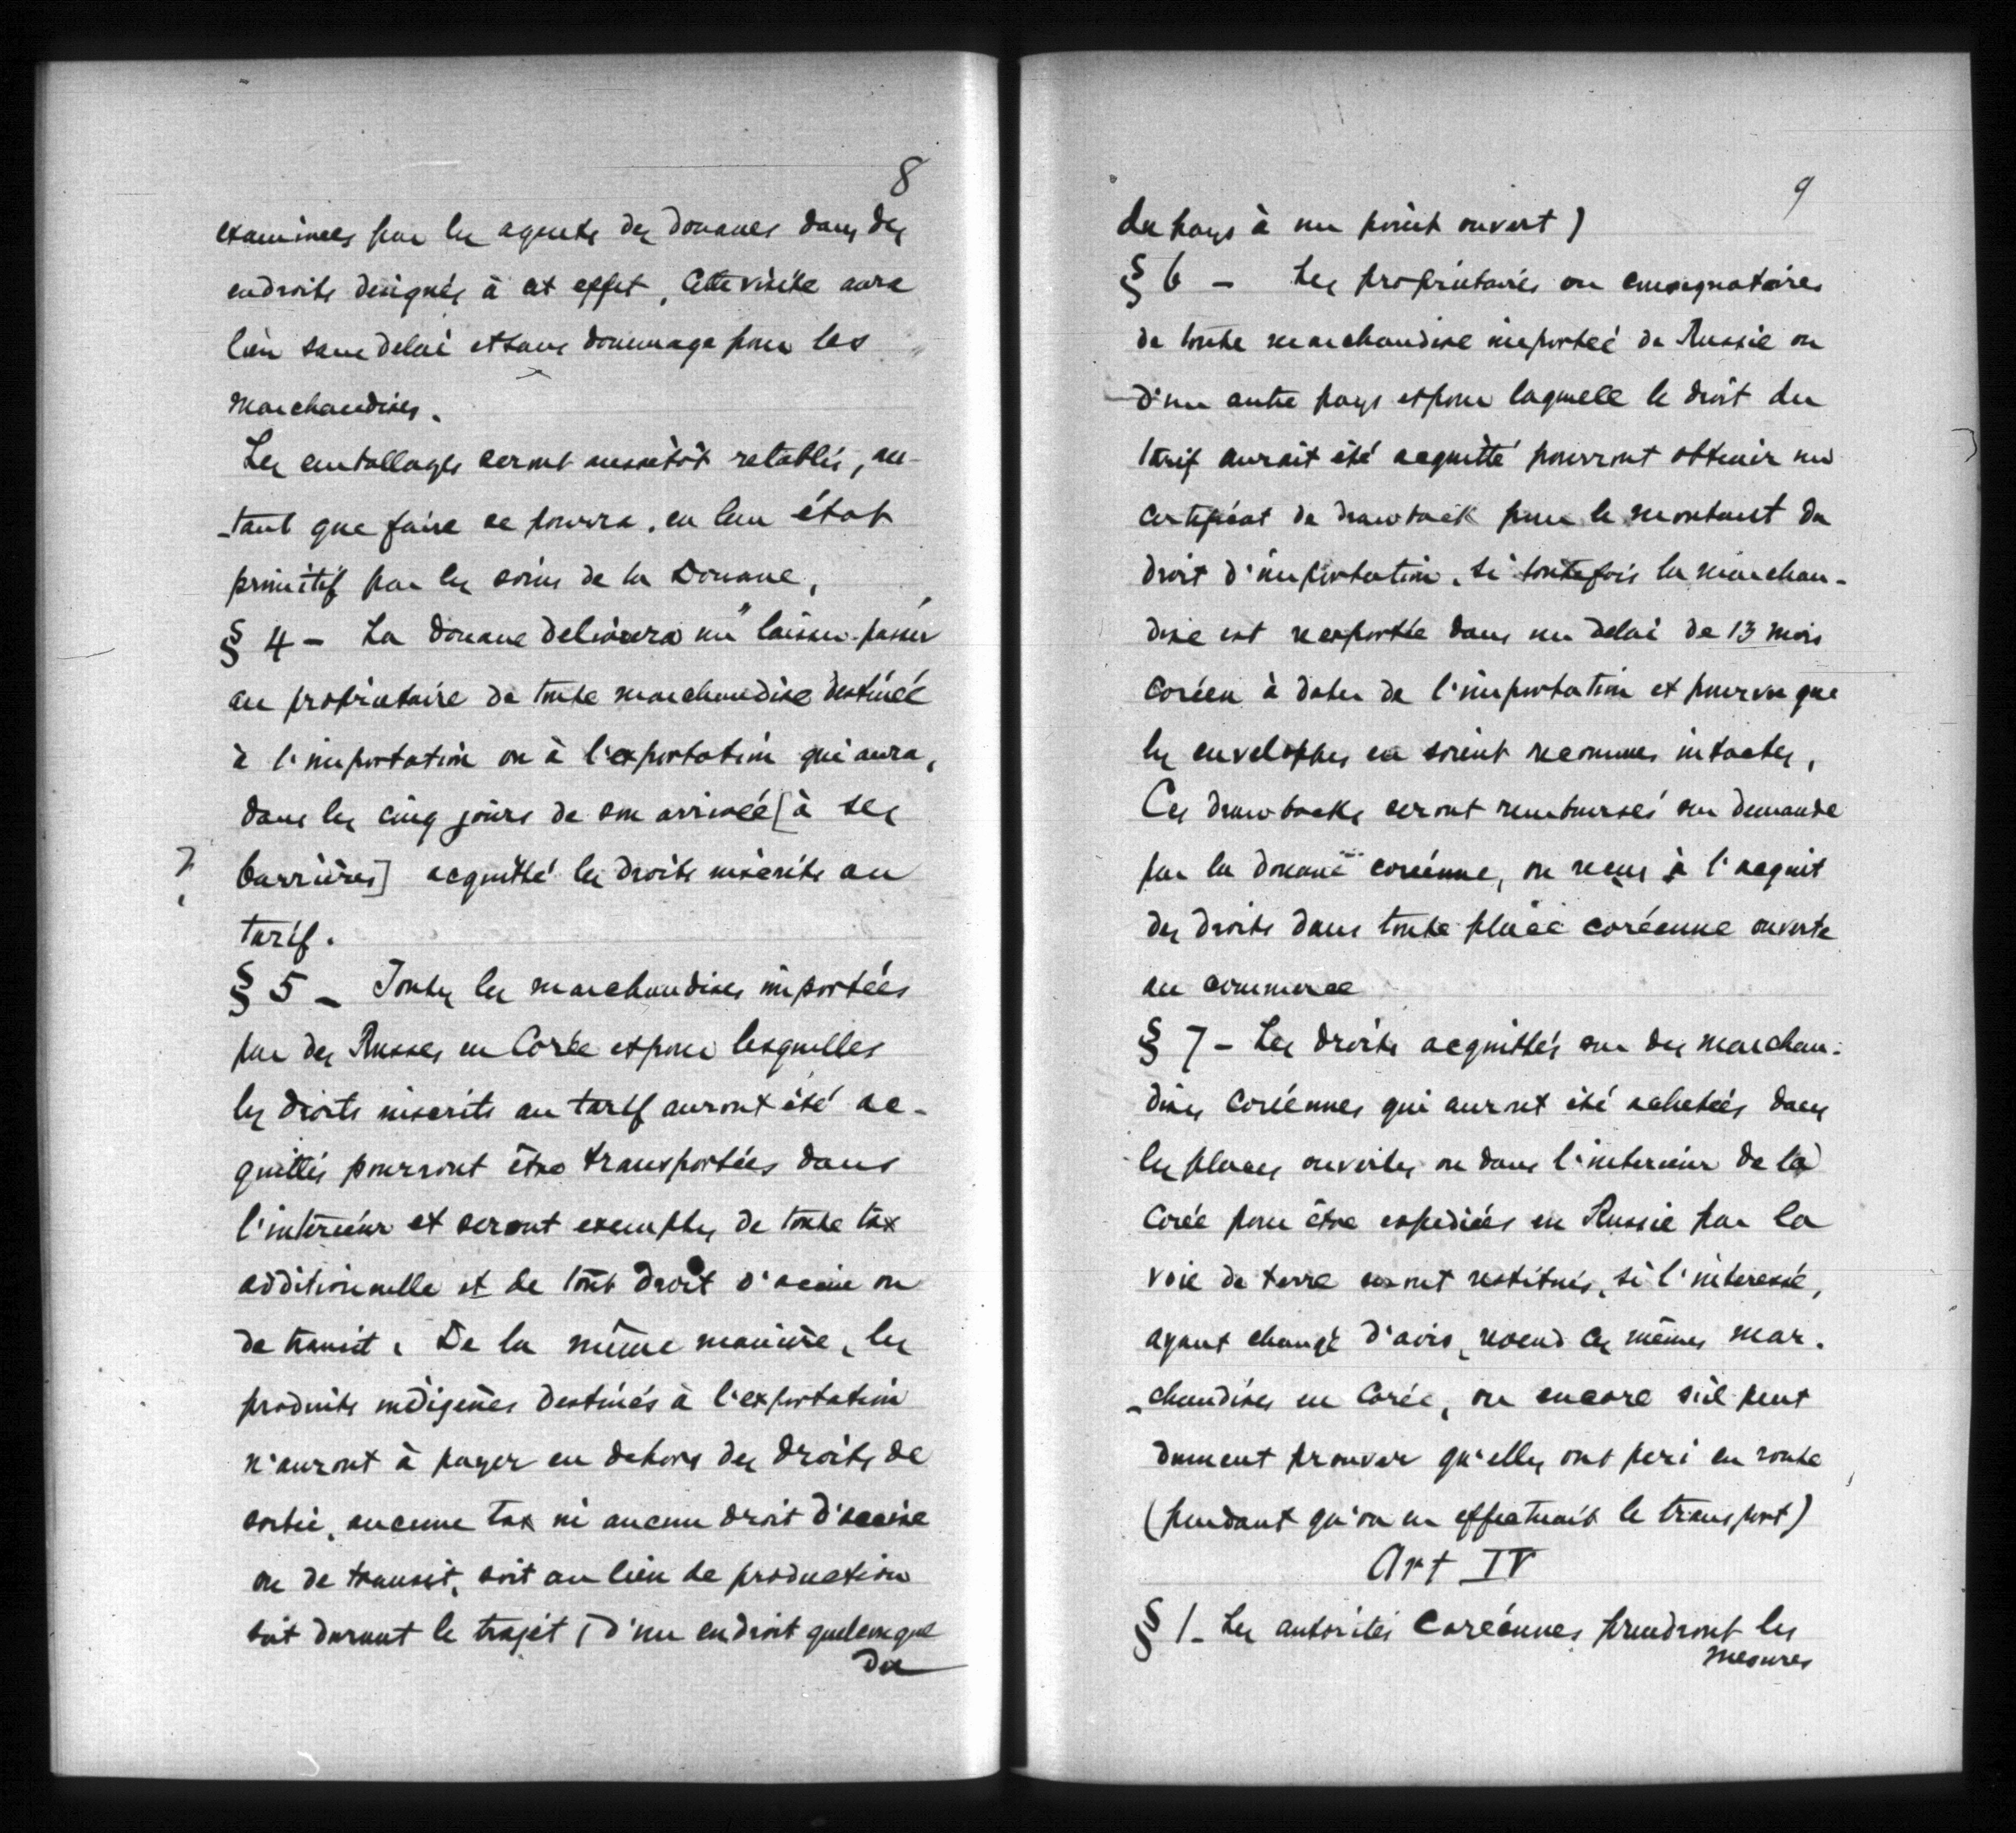 8
examinées par les agents des douanes dans des
endroits designés à cet effet, Cette visite aura
lieu sans delai et sans dommage pour les
marchandises.
Les emballages seront aussitôt retablis, au-
-tant que faire se pourra, en leur état
primitif par les soins de la Douane,
§ 4 - La douane delivrera un "laisser-passer
au propriétaire de toute marchandise destinée
à l'importation ou à l'exportation qui aura,
dans les cinq jours de son arrivée [à ses
? barrières] acquitté les droits inscrits au
tarif.
§ 5 - Toutes les marchandises importées
par des Russes en Corée et pour lesquelles
les droits inscrits au tarif auront été ac-
quittés pourront être transportées dans
l'intérieur et seront exemptes de toute tax
additionnelle et de tout droit d'accise ou
de transit. De la même manière, les
produits indigènes destinés à l'exportation
n'auront à payer en dehors des droits de
sortie, aucune tax ni aucun droit d'accise
ou de transit, soit au lieu de production
soit durant le trajet (d'un endroit quelconque
du
9
du pays à un point ouvert)
§ 6 - Les propriétaires ou consignataires
de toute marchandise importée de Russie ou
d'un autre pays et pour laquelle le droit du
tarif aurait été acquitté pourront obtenir un
certificat de drawback pour le montant du
droit d'importation, si toutefois la marchan-
dise est reexportée dans un delai de 13 mois
coréen à dater de l'importation et pourvu que
les enveloppes en soient reconnues intactes,
Ces drawbacks seront remboursés sur demande
par la douane coréenne, ou reçus à l'acquit
des droits dans toute place coréenne ouverte
au commerce
§ 7 - Les droits acquittés sur des marchan-
dises coréennes qui auront été achetées dans
les places ouvertes ou dans l'interieur de la
Corée pour être expediées en Russie par la
voie de terre seront restitués, si l'interessé,
ayant changé d'avis, revend ces mêmes mar-
-chandises en Corée, ou encore s'il peut
dument prouver qu'elles ont peri en route
(pendant qu'on en effectuait le transport)
Art IV
§ 1 - Les autorités Coréennes prendront les
mesures